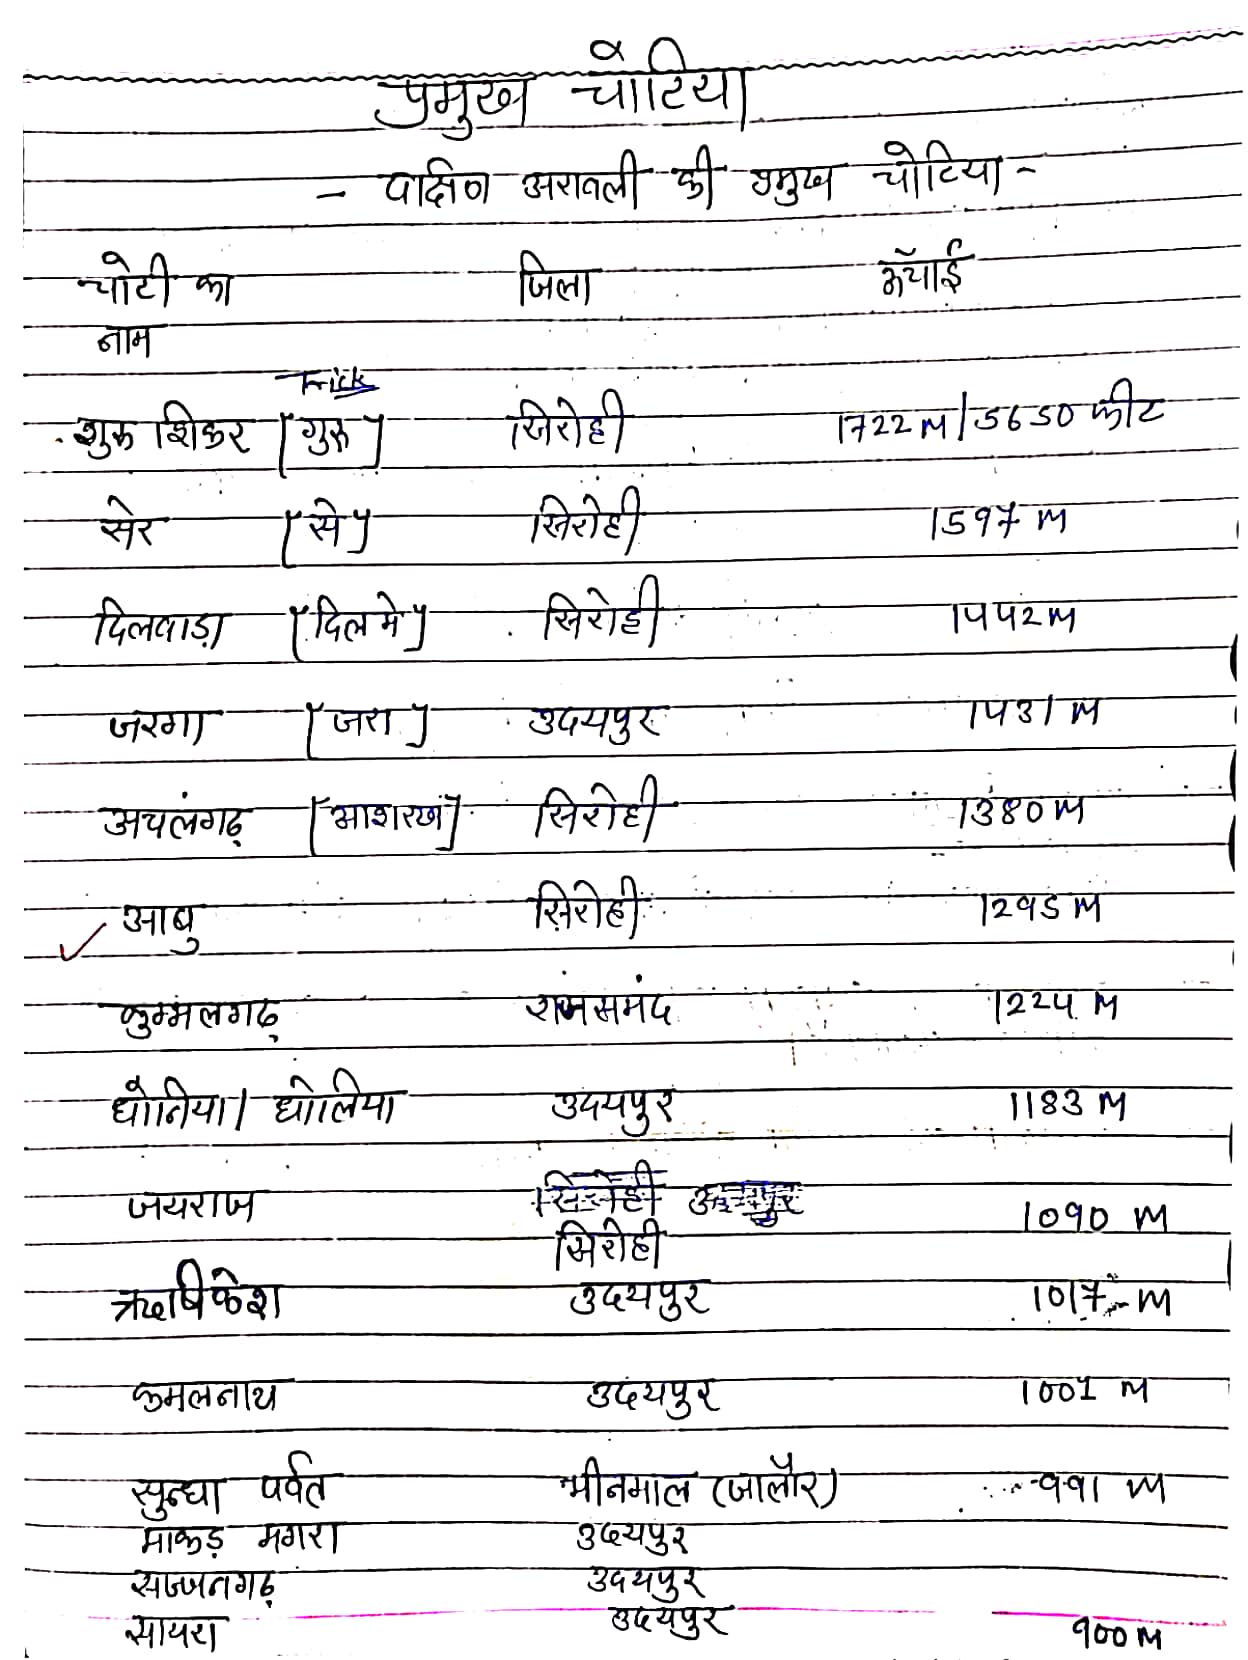 प्रमुख चोटिया
- दक्षिण अरावली की प्रमुख चोटिया -
चोटी का जिला ऊँचाई
नाम
Trick
गुरू शिकर [गुरू] सिरोही 1722 M/5650 फीट
सेर [से] सिरोही 1597 M
दिलवाड़ा [दिल मे] सिरोही 1442 M
जरगा [जरा] उदयपुर 1431 M
अचलंगढ़ [आशरख] सिरोही 1380 M
आबु सिरोही 1295 M
कुम्भलगढ़ राजसमंद 1224 M
धोनिया / धोलिया उदयपुर 1183 M
जयराज 1090 M
सिरोही
ऋषिकेश उदयपुर 1017 - M
कमलनाथ उदयपुर 1001 M
सुन्धा पर्वत भीनमाल (जालौर) 991 M
माकड़ मगरा उदयपुर
सज्जनगढ़ उदयपुर
सायरा उदयपुर 900 M